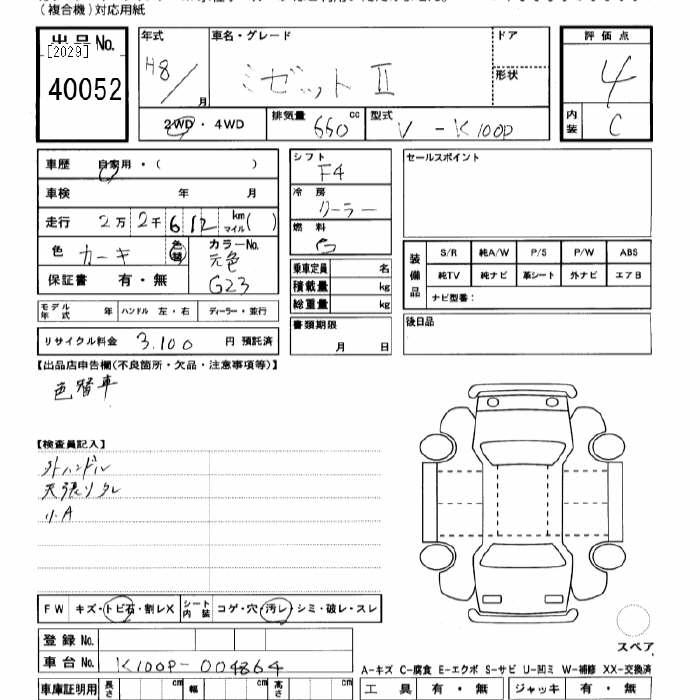 (複合機)対応用紙
出品No.
[2029]
40052
年式
H8/
月
車名・グレード
ミゼットⅡ
ドア
形状
2WD・4WD
排気量
660
cc
型式
V-K100P
評価点
4
内装
C
車歴 自家用・( )
車検 年 月
走行 2万 2千 612 km マイル( )
色 カーキ 色替
カラーNo.
元色
G23
保証書 有・無
モデル年式 年 ハンドル 左・右 ディーラー・並行
リサイクル料金 3,100 円 預託済
シフト
F4
冷房
クーラー
燃料
G
乗車定員 名
積載量 kg
総重量 kg
書類期限
月 日
セールスポイント
装備品
S/R 純A/W P/S P/W ABS
純TV 純ナビ 革シート 外ナビ エアB
ナビ型番:
後日品
【出品店申告欄(不良箇所・欠品・注意事項等)】
色替車
【検査員記入】
外ハンドル
天張リタレ
リ.A
FW キズ・トビ石・割レX シート内装 コゲ・穴・汚レ・シミ・破レ・スレ
登録No.
車台No. K100P-004864
スペア
A-キズ C-腐食 E-エクボ S-サビ U-凹ミ W-補修 XX-交換済
車庫証明用 長さ cm 幅 cm 高さ cm
工具 有・無 ジャッキ 有・無